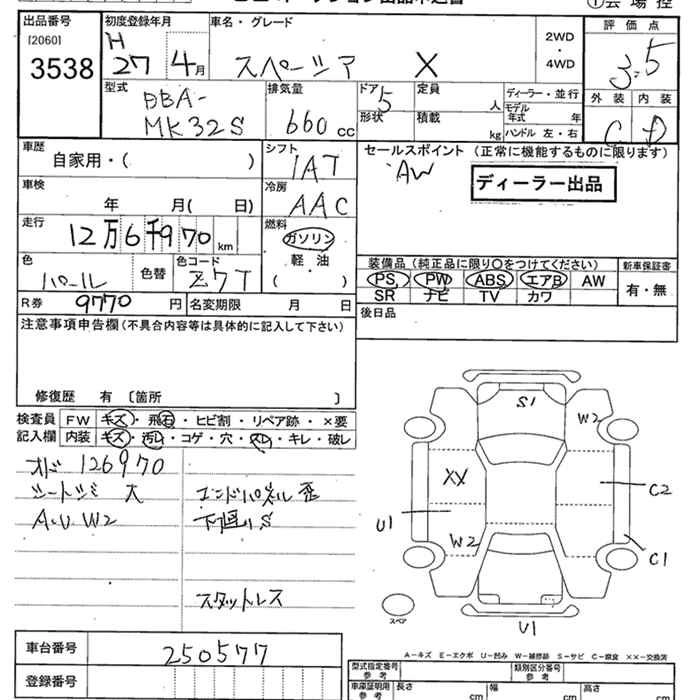 出品番号
[2060]
3538
初度登録年月
H
27 4月
車名・グレード
スペーシア X
2WD
・
4WD
評価点
3.5
外装 内装
C D
型式
DBA-
MK32S
排気量
660 cc
ドア 5
形状
定員 人
積載 kg
ディーラー・並行
モデル
年式 年
ハンドル 左・右
車歴
自家用・( )
シフト
IAT
セールスポイント (正常に機能するものに限ります)
AW
ディーラー出品
車検
年 月( 日)
冷房
AAC
走行
12万6千970 km
燃料
ガソリン
軽・油
( )
色
パール
色替
色コード
Z7T
装備品 (純正品に限り○をつけてください)
新車保証書
PS PW ABS エアB AW
有・無
SR ナビ TV カワ
R券 9770 円
名変期限 月 日
後日品
注意事項申告欄 (不具合内容等は具体的に記入して下さい)
修復歴 有 〔箇所 〕
検査員
記入欄
FW キズ・飛石・ヒビ割・リペア跡・×要
内装 キズ・汚レ・コゲ・穴・スレ・キレ・破レ
オド 126970
シートシミ 大
A.U W2
エンドパネル歪
下廻りS
スタットレス
S1
W2
XX
C2
U1
W2
C1
スペア
U1
A-キズ E-エクボ U-凹み W-補修跡 S-サビ C-腐食 ××-交換済
車台番号
250577
登録番号
型式指定番号
参考
類別区分番号
参考
車庫証明用
参考
長さ cm
幅 cm
高さ cm